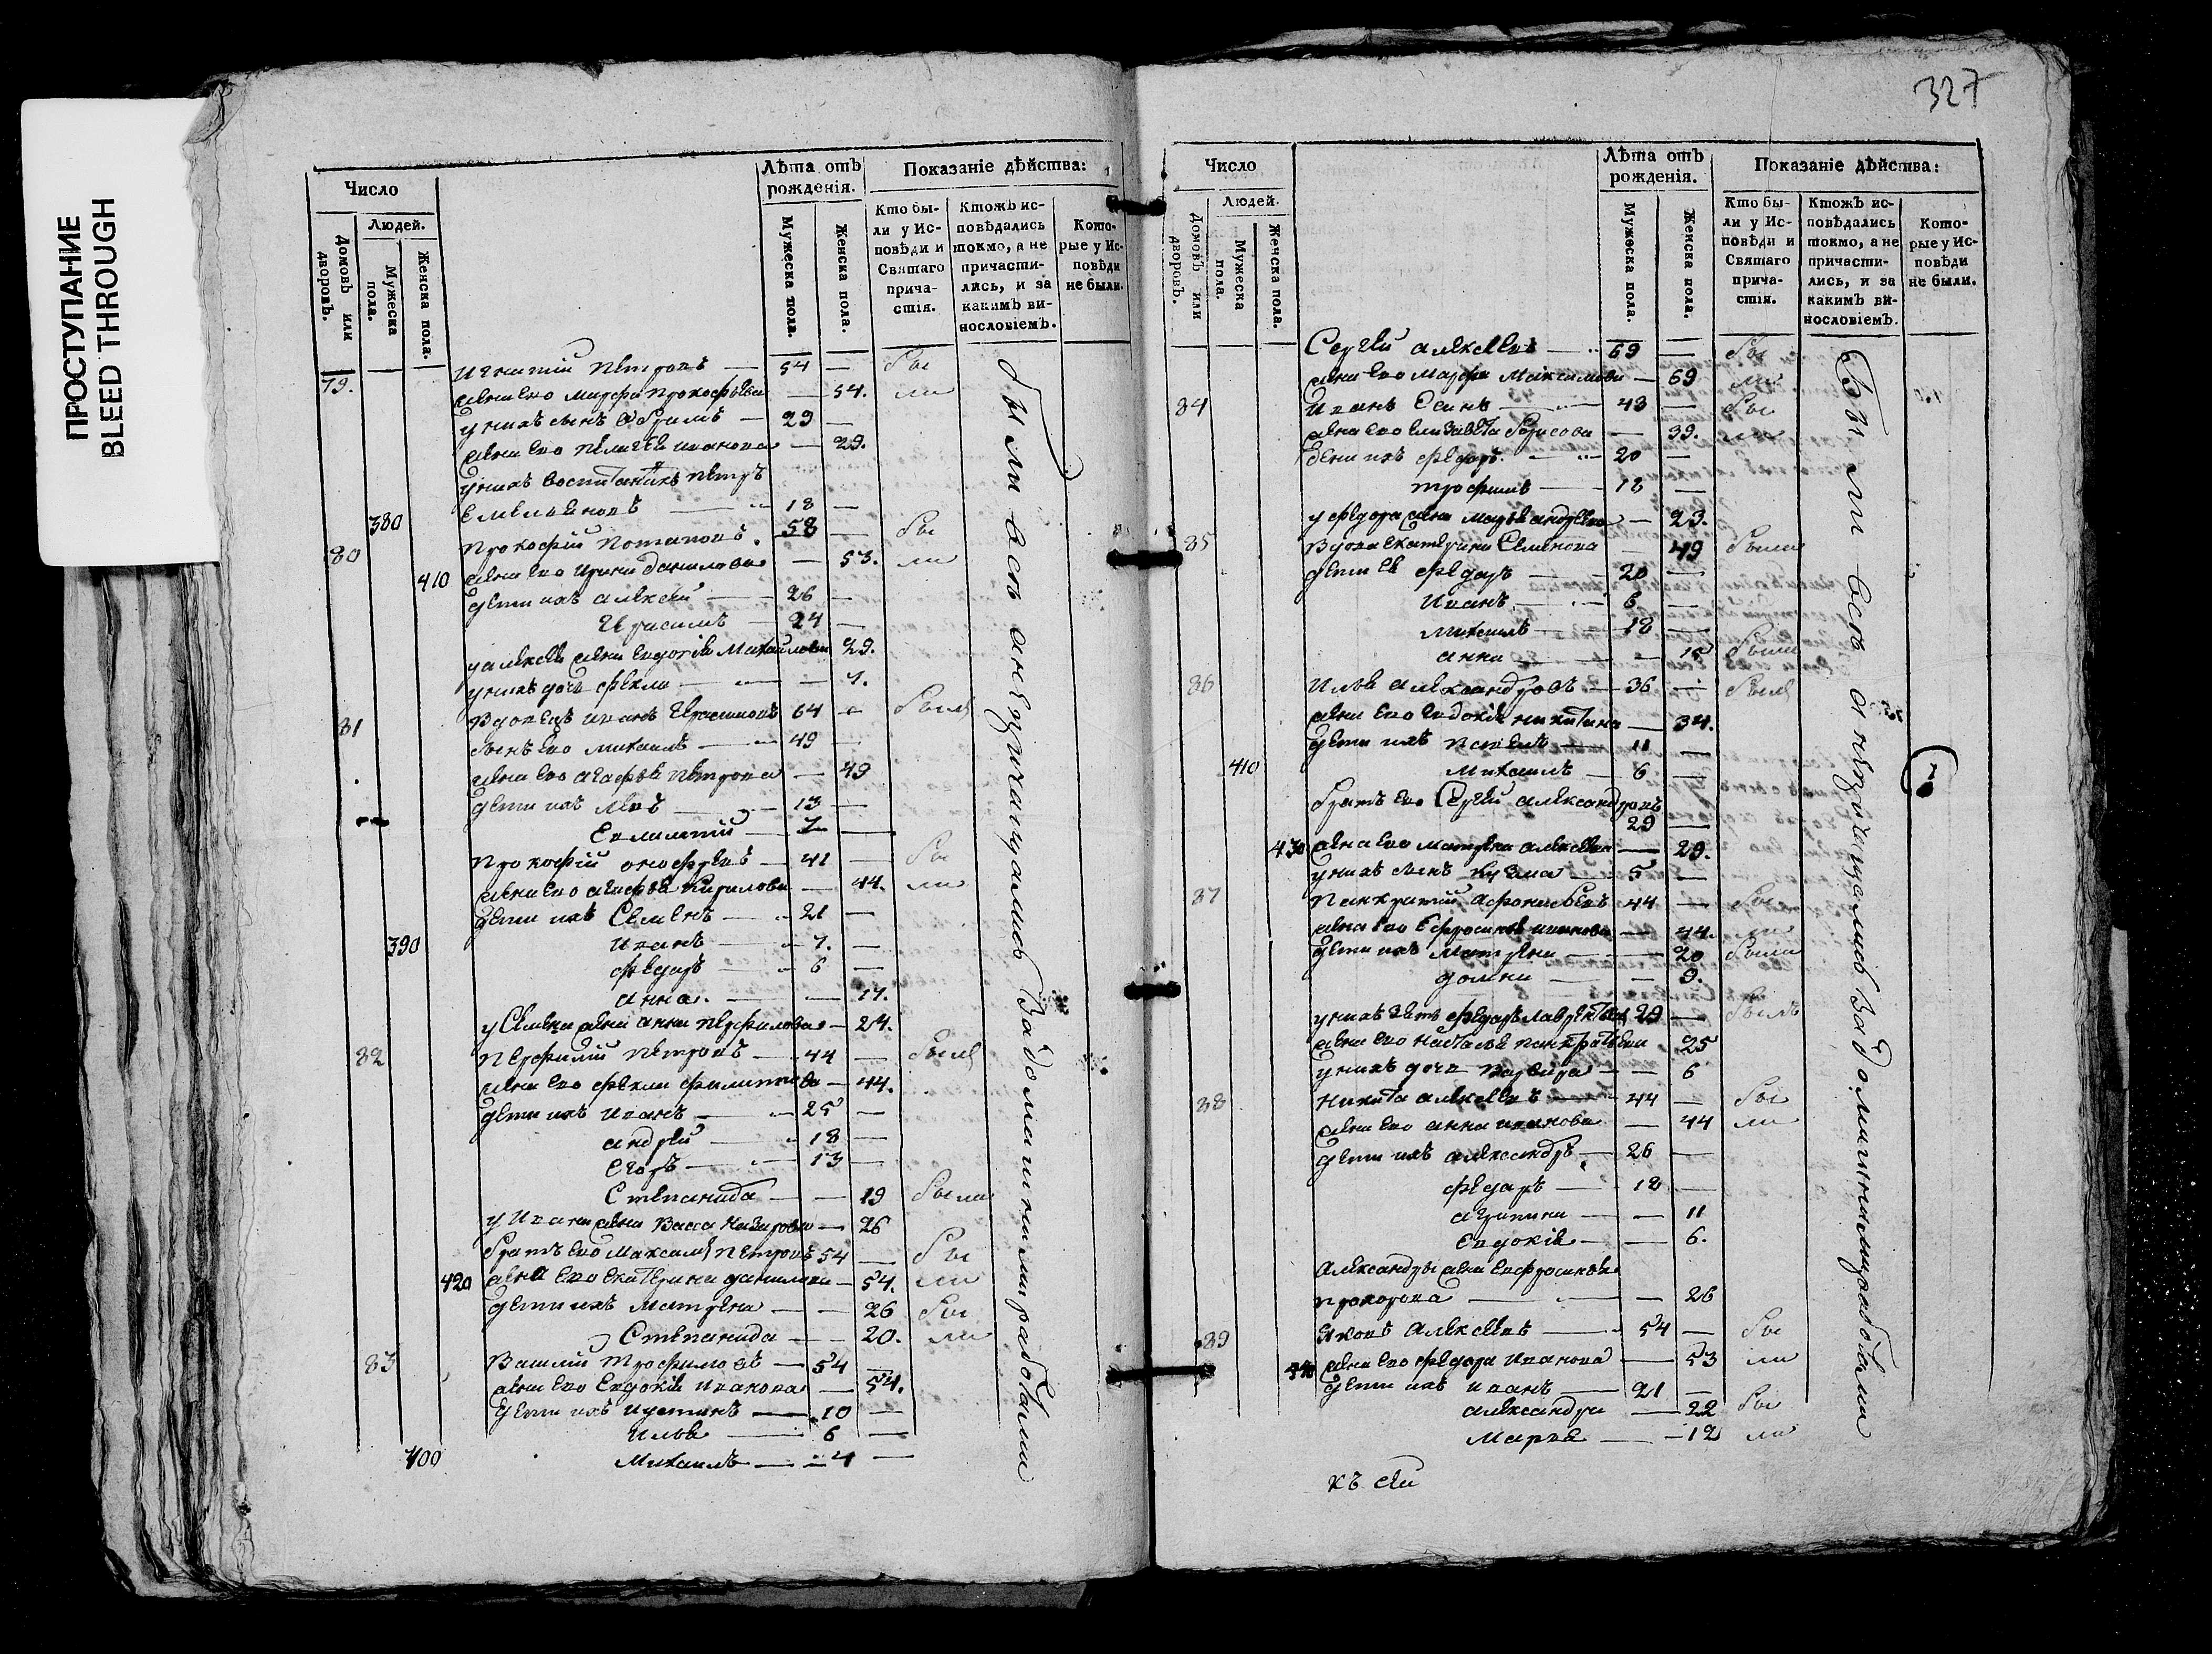 ПРОСТУПАНИЕ
BLEED THROUGH
Число
Людей.
Домовъ или дворовъ.
Мужеска пола.
Женска пола.
Лѣта отъ рожденія.
Мужеска пола.
Женска пола.
Показаніе дѣйства:
Кто бы-
ли у Ис-
повѣди и
Святаго
прича-
стія.
Ктожъ ис-
повѣдались
токмо, а не
причасти-
лись, и за
какимъ ви-
нословіемъ.
Кото-
рые у Ис-
повѣди
не были.
79. Игнатій Петровъ — 54 — бы
жена ево марфа Прокофьева — 54. ли
у нихъ сынъ Абрамъ — 29 —
жена ево Пелагея иванова — 29.
у нихъ воспитаникъ Петръ
380 Емельяновъ — 18 —
80 Прокофій Потаповъ. 58 — бы
410 жена ево ирина данилова — 53. ли
дети ихъ алексей — 26 —
Герасимъ — 24 —
у алексея жена евдокія Михайлова 29.
у нихъ дочь фекла — — 7.
81 Вдовецъ иванъ Герасимовъ 64 — былъ
сынъ ево михаилъ — 49 —
жена ево агафья Петрова — 49
дети ихъ левъ — 13 —
Евлампій — 7 —
Прокофій онофреевъ — 41 — бы
жена ево агафья Кирилова — 44. ли
дети ихъ Семенъ — 21 —
390 иванъ — 7. —
федоръ — 6 —
анна. — — 17.
у Семена жена анна Перфилова — 24.
82 Перфилій Петровъ — 44 — былъ
жена ево фекла филипова — 44.
дети ихъ иванъ — 25 —
андрей — 18 —
Егоръ — 13 —
Степанида — — 19 были
у Ивана жена Васса Назарова — 26
братъ ево Максимъ Петровъ 54 — бы
420 жена ево екатерина данилова — 54. ли
дети ихъ матрена — — 26 бы
Степанида — — 20. ли
83 Василій Трофимовъ — 54 —
жена ево Евдокія иванова — 54.
дети ихъ иустинъ — 10 —
илья — 6 —
400 михаилъ — 4 —
были все анепричащались Вадомашними работами
327
Число
Людей.
Домовъ или дворовъ.
Мужеска пола.
Женска пола.
Лѣта отъ рожденія.
Мужеска пола.
Женска пола.
Показаніе дѣйства:
Кто бы-
ли у Ис-
повѣди и
Святаго
прича-
стія.
Ктожъ ис-
повѣдались
токмо, а не
причасти-
лись, и за
какимъ ви-
нословіемъ.
Кото-
рые у Ис-
повѣди
не были.
Сергей алексеевъ — 69 — бы
жена ево марфа Максимова — 69 ли
84 Иванъ Есинъ — 43 — бы
жена ево елизавета борисова — 39. ли
дети ихъ федоръ. — 20 —
трофимъ — 18 —
у федора жена марья андреева — 23.
85 Вдова екатерина Семенова — 49 были
дети ея федоръ — 20 —
Иванъ — 6 —
михаилъ — 18 —
анна — — 15 были
86 Илья александровъ — 36 — былъ
жена ево евдокія никитина — 34.
дети ихъ павелъ — 11 —
410 михаилъ — 6 —
братъ ево Сергей александровъ
29 —
430 жена ево матрена алексеева — 29.
у нихъ сынъ кузма — 5 —
87 Панкратій афонасьевъ 44 — бы
жена ево Ефросинья иванова — 44. ли
дети ихъ матрена — — 20 были
домна — 9.
у нихъ зять федоръ лаврентьевъ 29 — былъ
жена ево наталья панкратьева 25
у нихъ дочь варвара — — 6
88 никита алексеевъ — 44 — бы
жена ево анна иванова — 44 ли
дети ихъ александръ — 26 —
федоръ — 18 —
агрипина — — 11
Евдокія — — 6.
Александры жена евфросинья
прохорова — — 26
89 яковъ алексеевъ — 54 — бы
440 жена ево федора Иванова — 53 ли
дети ихъ иванъ — 21 —
александра — 22 бы
марья — 12 ли
Были все анепричащались Вадомашними работами
къ сей